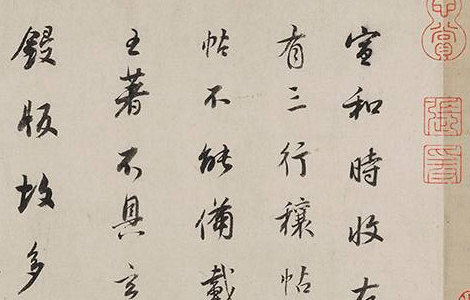 宣和時收
有三行穰帖
帖不能備載
王著不具
鋟版故多